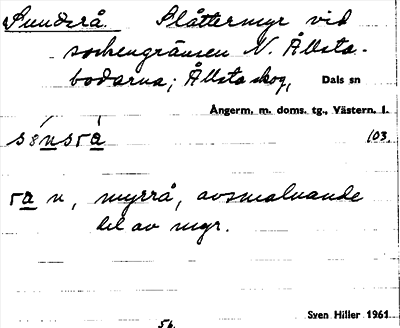 Sundsrå. Slåttermyr vid
sockengränsen N. Ållsta-
bodarna; Ållsta skog, Dals sn
Ångerm. m. doms. tg., Västern. l.
sénsrà 103.
ra n, myrrå, avsmalnande
del av myr.
Sven Hiller 1961
56.